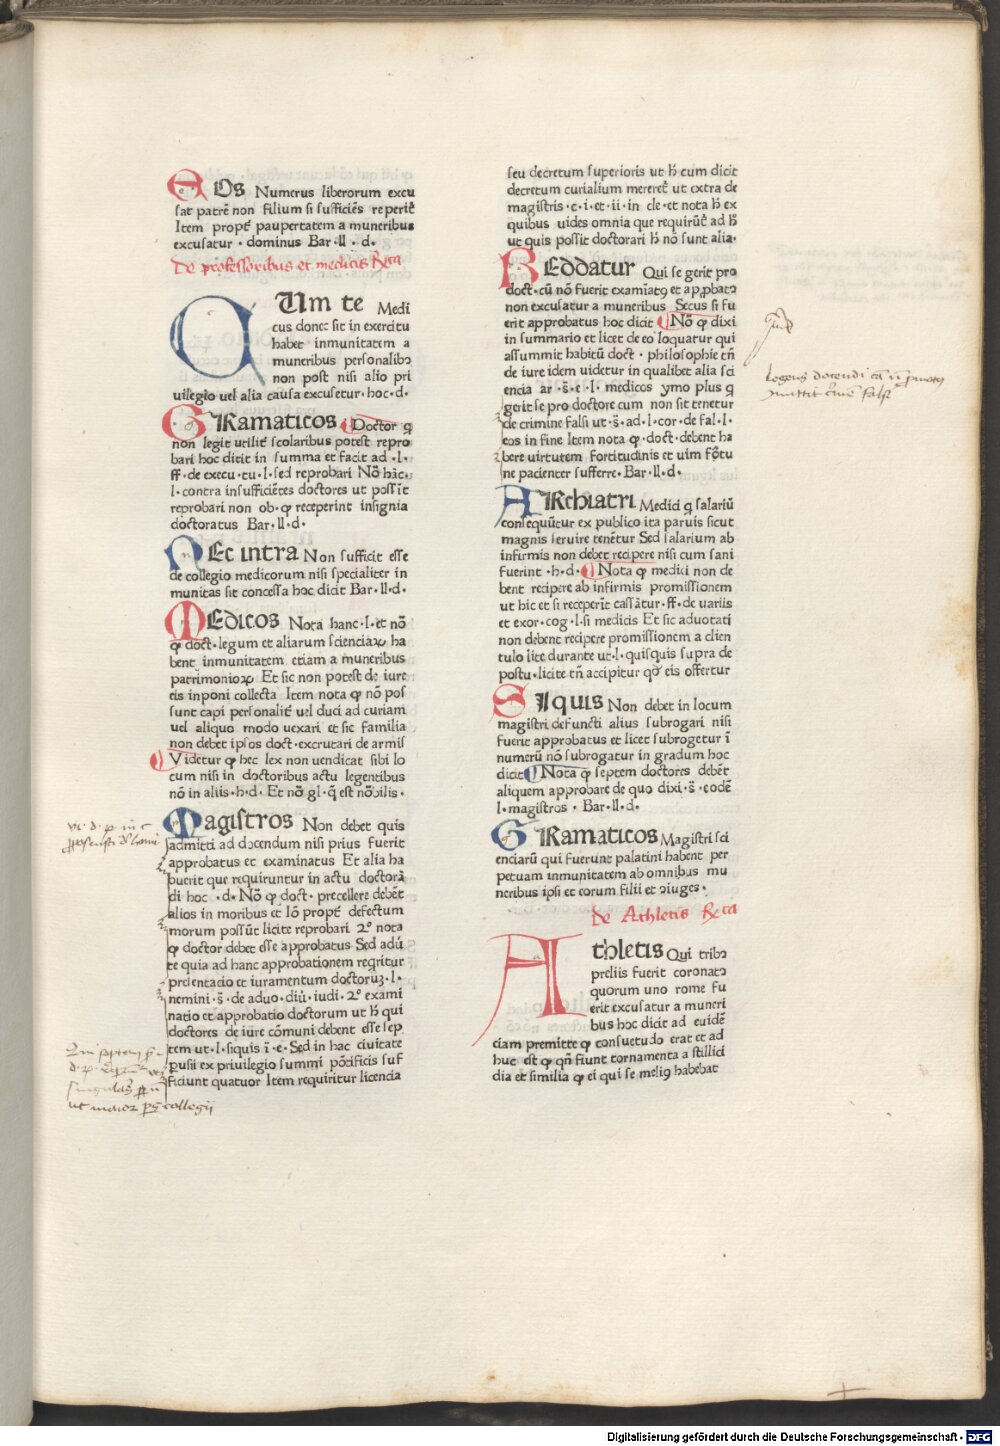 EOs Numerus liberorum excu
sat patrē non filium si sufficiēs reperit᷑
Item propt᷑ paupertatem a muneribus
excusatur · dominus Bar· ll · d·
De professoribus et medicis Rcā
CUm te Medi
cus donec sit in exercitu
habet inmunitatem a
muneribus personalibꝫ
non post nisi alio pri
uilegio uel alia causa excusetur · hoc · d·
GRamaticos Doctor q̄
non legit utilit᷑ scolaribus potest repro
bari hoc dicit in summa et facit ad · l·
ff· de execu· tu· l· sed reprobari Nō hāc·
l· contra insufficiētes doctores ut possīt
reprobari non ob· ꝙ receperint insignia
doctoratus Bar· ll· d·
NEc intra Non sufficit esse
de collegio medicorum nisi specialiter in
munitas sit concessa hoc dicit Bar· ll· d·
MEdicos Nota hanc· l· et nō
ꝙ doct· legum et aliarum scienciaꝝ ha
bent inmunitatem etiam a muneribus
patrimonioꝝ Et sic non potest de iure
eis inponi collecta Item nota ꝙ nō pos
sunt capi personalit᷑ uel duci ad curiam
uel aliquo modo uexari et sic familia
non debet ipsos doct· excrutari de armis
Videtur ꝙ hec lex non uendicat sibi lo
cum nisi in doctoribus actu legentibus
nō in aliis· h· d· Et nō gl· q̄ est nōbilis·
Magistros Non debet quis
admitti ad docendum nisi prius fuerit
approbatus et examinatus Et alia ha
buerit que requiruntur in actu doctorā
di hoc · d· Nō ꝙ doct· precellere debēt
alios in moribus et Iō propt᷑ defectum
morum possūt licite reprobari 2° nota
ꝙ doctor debet esse approbatus Sed adū
te quia ad hanc approbationem reqritur
presentacio et iuramentum doctoruꝫ· l·
nemini· s̄· de aduo· diū· iudi· 2° exami
natio et approbatio doctorum ut h̄ qui
doctores de iure cōmuni debent esse sep
tem ut· l· siquis ī· e· Sed in hac ciuitate
pusii ex priuilegio summi pōtificis suf
ficiunt quatuor Item requiritur licencia
seu decretum superioris ut h̄ cum dicit
decretum curialium mereret᷑ ut extra de
magistris· c· i· et· ii· in cle· et nota h̄ ex
quibus uides omnia que requirūt᷑ ad h̄
ut quis possit doctorari h̄ nō sunt alia·
REddatur Qui se gerit pro
doct· cū nō fuerit examīatꝯ et ap̄pbatꝯ
non excusatur a muneribus Secus si fu
erit approbatus hoc dicit Nō ꝙ dixi
in summario et licet de eo loquatur qui
assummit habitū doct · philosophie tn̄
de iure idem uidetur in qualibet alia sci
encia ar· s̄· e· l· medicos ymo plus q̄
gerit se pro doctore cum non sit tenetur
de crimine falsi ut· s̄· ad· l· cor· de fal· l·
eos in fine Item nota ꝙ· doct· debent ha
bere uirtutem fortitudinis et uim fortu
ne pacienter sufferre· Bar· ll· d·
ARchiatri Medici q̄ salariū
consequūtur ex publico ita paruis sicut
magnis seruire tenētur Sed salarium ab
infirmis non debet recipere nisi cum sani
fuerint · h· d· Nota ꝙ medici non de
bent recipere ab infirmis promissionem
ut hic et si receperīt cassātur· ff· de uariis
et exor· cog· l· si medicis Et sic aduotati
non debent recipere promissionem a clien
tulo lite durante ut· l· quisquis supra de
postu· licite tn̄ accipitur qd̄ eis offertur
SIquis Non debet in locum
magistri defuncti alius subrogari nisi
fuerit approbatus et licet subrogetur ī
numerū nō subrogatur in gradum hoc
dicit Nota ꝙ septem doctores debēt
aliquem approbare de quo dixi· s̄· eodē
l· magistros · Bar· ll· d·
GRamaticos Magistri sci
enciarū qui fuerunt palatini habent per
petuam inmunitatem ab omnibus mu
neribus ipsi et eorum filii et ꝯiuges·
De Athletis Rcā
AthletIs Qui tribꝯ
preliis fuerit coronatꝯ
quorum uno rome fu
erit excusatur a muneri
bus hoc dicit ad euidē
ciam premitte ꝙ consuetudo erat et ad
huc est ꝙ qn̄ fiunt tornamenta astilici
dia et similia ꝙ ei qui se meliꝯ habebat
ut maior collegii
Digitalisierung gefördert durch die Deutsche Forschungsgemeinschaft · DFG